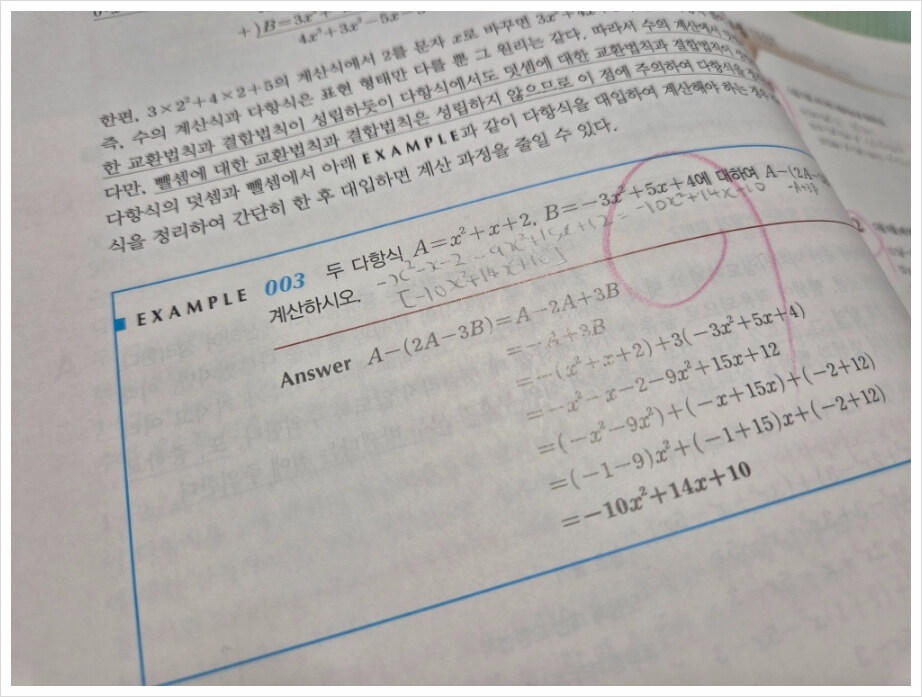 +)B=3x²+
4x³+3x²-5x-
한편, 3×2²+4×2+5의 계산식에서 2를 문자 x로 바꾸면 3x²+4x+
즉, 수의 계산식과 다항식은 표현 형태만 다를 뿐 그 원리는 같다. 따라서 수의 계산에서
한 교환법칙과 결합법칙이 성립하듯이 다항식에서도 덧셈에 대한 교환법칙과 결합법칙이
다만, 뺄셈에 대한 교환법칙과 결합법칙은 성립하지 않으므로 이 점에 주의하여 다항식을
다항식의 덧셈과 뺄셈에서 아래 EXAMPLE과 같이 다항식을 대입하여 계산해야 하는 경우
식을 정리하여 간단히 한 후 대입하면 계산 과정을 줄일 수 있다.
EXAMPLE 003 두 다항식 A=x²+x+2, B=-3x²+5x+4에 대하여 A-(2A-
-A+3B
계산하시오. -x²-x-2-9x²+15x+12=-10x²+14x+10
[-10x²+14x+10]
Answer A-(2A-3B)=A-2A+3B
=-A+3B
=-(x²+x+2)+3(-3x²+5x+4)
=-x²-x-2-9x²+15x+12
=(-x²-9x²)+(-x+15x)+(-2+12)
=(-1-9)x²+(-1+15)x+(-2+12)
=-10x²+14x+10